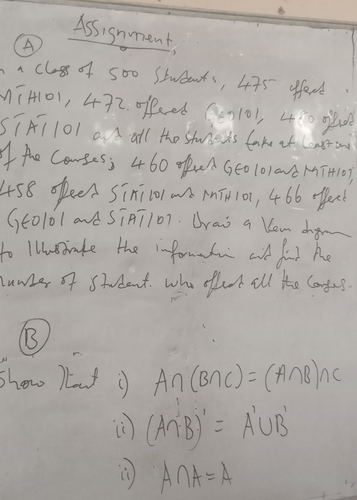 Assignment
A
n a class of 500 Students, 475 offered
MTH101, 472 offered GEO101, offered
STAT101 and all the students take at least one
of the Courses; 460 offered GEO101 and MTH101,
458 offered STAT101 and MTH101, 466 offered
GEO101 and STAT101. Draw a Venn diagram
to Illustrate the information and find the
number of student who offered all the Courses.
B
Show that i) A∩(B∩C) = (A∩B)∩C
ii) (A∩B)' = A'∪B'
ii) A∩A = A